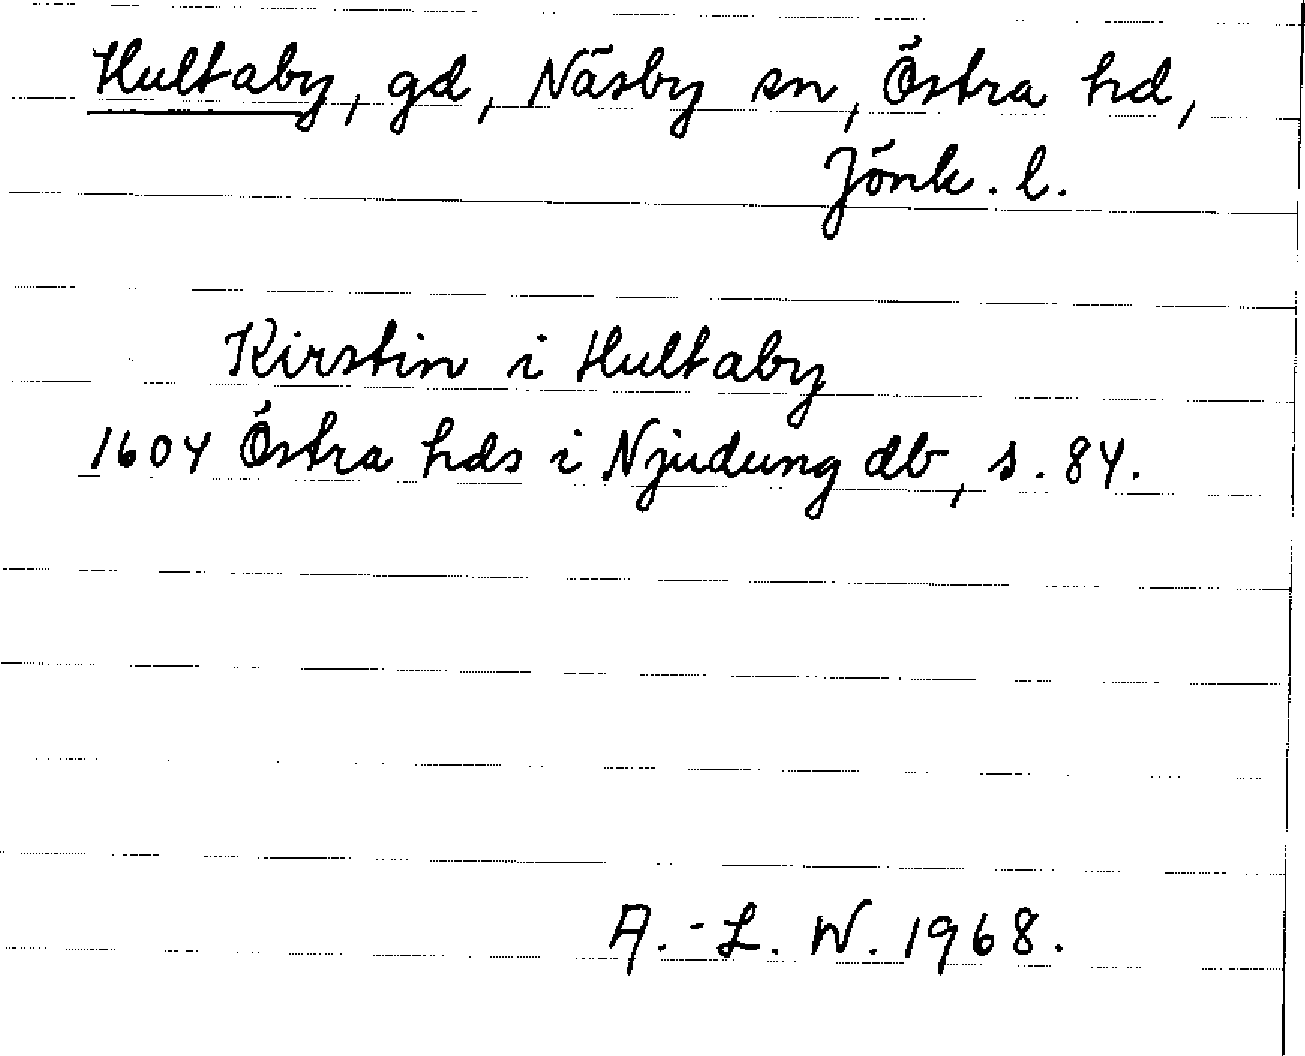 Hultaby, gd, Näsby sn, Östra hd,
Jönk. l.
Kirstin i Hultaby
1604 Östra hds i Njudung db, s. 84.
A.-L. W. 1968.